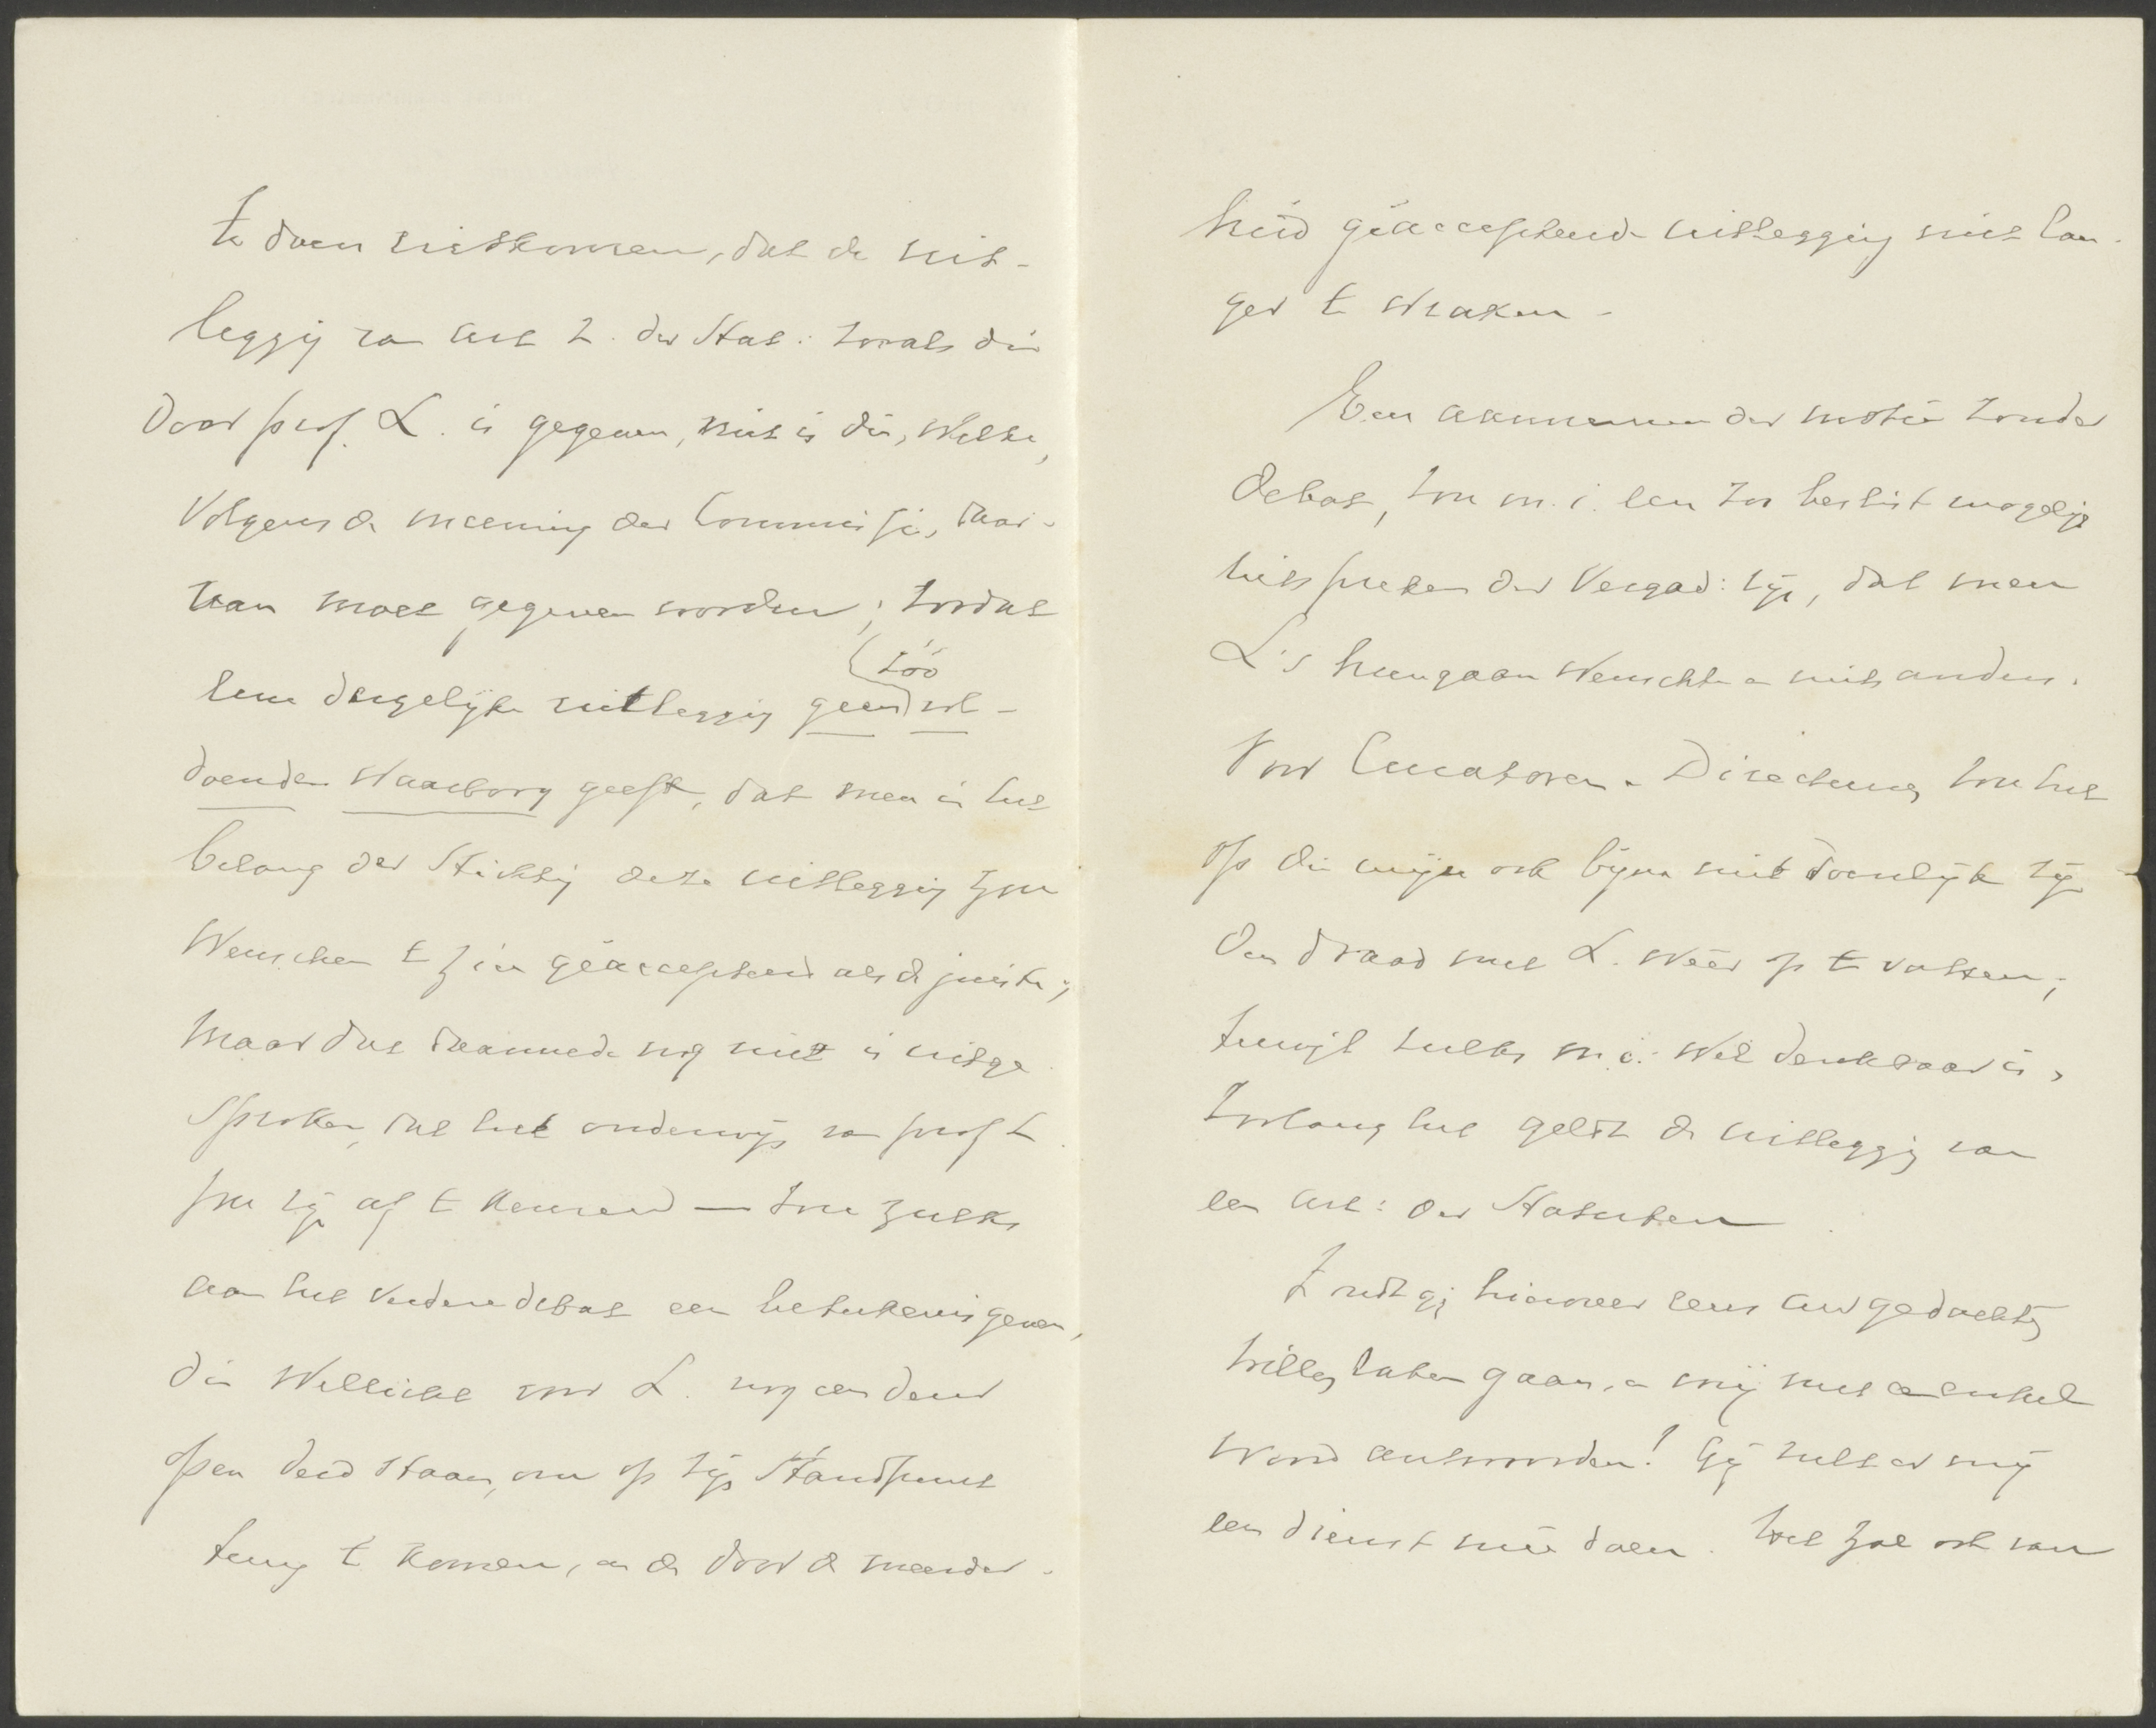 te doen uitkomen, dat de uit-
legging van art 2. der Stat: zooals die
door prof. L. is gegeven, niet is die, welke,
volgens de meening der Commissie, daar-
van moet gegeven worden; zoodat
eene dergelijke uitlegging geen (zóó) vol-
doenden waarborg geeft, dat men in het
belang der Stichting deze uitlegging zou
wenschen te zien geaccepteerd als de juiste;
maar dat daarmede nog niet is uitge-
sproken, dat het onderwijs van prof L.
zou zijn af te keuren — zou zulks
aan het verdere debat een beteekenis geven,
die wellicht voor L. nog een deur
open deed staan, om op zijn standpunt
terug te komen, en de door de meerder-
heid geaccepteerde uitlegging niet lan-
ger te wraken.
Een aannemen der motie zonder
debat, zou m.i. een zoo beslist mogelijk
uitspreken der Vergad: zijn, dat men
L's heengaan wenschte en niets anders.
Voor Curatoren en Directeuren zou het
op die wijze ook bijna niet doenlijk zijn
den draad met L. weer op te vatten;
terwijl zulks m.i. wel denkbaar is,
zoolang het geldt de uitlegging van
een art: der Statuten.
Zoudt gij hierover eens uw gedachten
willen laten gaan, en mij met een enkel
woord antwoorden! Gij zult er mij
een dienst mee doen. Het zal ook van